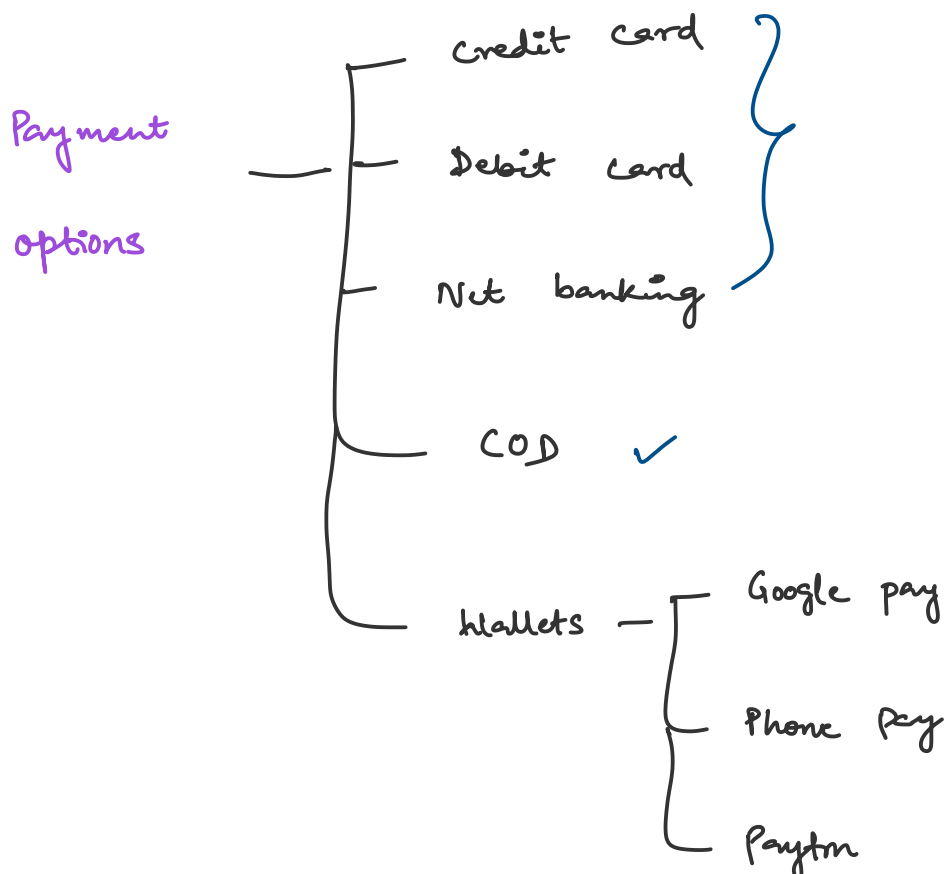 Payment
options
Credit card
Debit card
Net banking
COD
Wallets
Google pay
Phone pay
Paytm